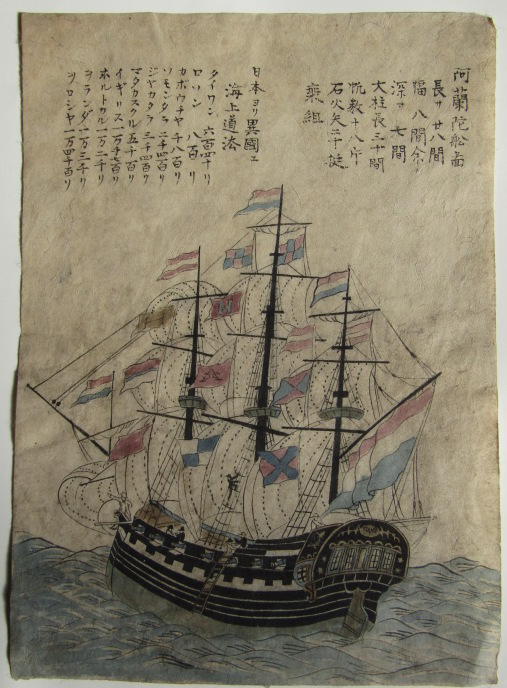 阿蘭陀舩圖
長サ 廿八間
幅 八間余
深サ 七間
大柱長三十間
帆数十八
石火矢二十挺
乗組
日本ヨリ異國エ
海上道法
タイワン 六百四十リ
ロソン 八百リ
カボウチヤ 千八百リ
ソモンダラ 二千四百リ
ジヤカタラ 三千四百リ
マタカスクル 五千百リ
イギリス 一万千七百リ
ホルトカル 一万二千リ
ヲランダ 一万三千リ
ヲロシヤ 一万四千百リ